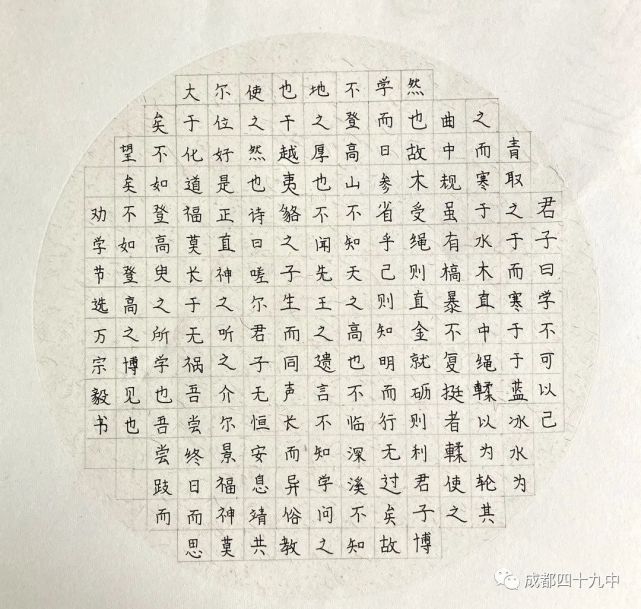 君子曰学不可以己
青取之于而寒于于蓝冰水为
之而寒于水木直中绳輮以为轮其
曲中规虽有槁暴不复挺者輮使之
然也故木受绳则直金就砺则利君子博
学而日参省乎己则知明而行无过矣故
不登高山不知天之高也不临深溪不知
地之厚也不闻先王之遗言不知学问之
也干越夷貉之子生而同声长而异俗教
使之然也诗曰嗟尔君子无恒安息靖共
尔位好是正直神之听之介尔景福神莫
大于化道福莫长于无祸吾尝终日而思
矣不如登高臾之所学也吾尝跂而
望矣不如登高之博见也
劝学节选万宗毅书
成都四十九中